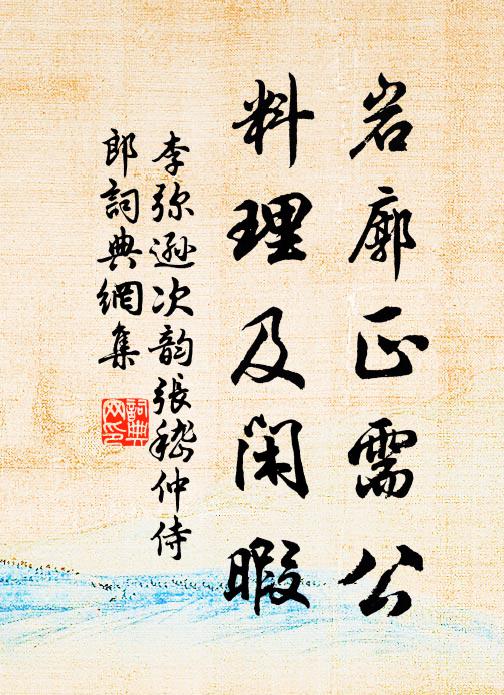 岩廓正需公
料理及闲暇
李弥逊次韵張嵇仲侍
郎詞典網集
詞典
网印